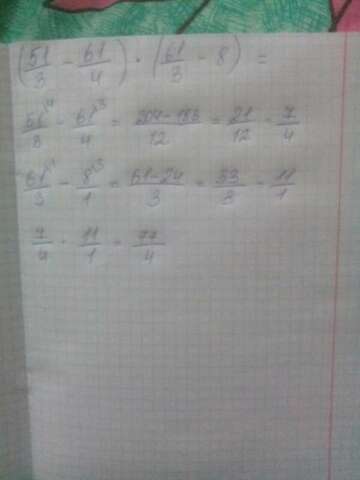 (51/3 - 61/4) · (61/3 - 8) =
51⁴/3 - 61³/4 = 204-183/12 = 21/12 = 7/4
61¹/3 - 8³/1 = 61-24/3 = 33/3 = 11/1
7/4 · 11/1 = 77/4